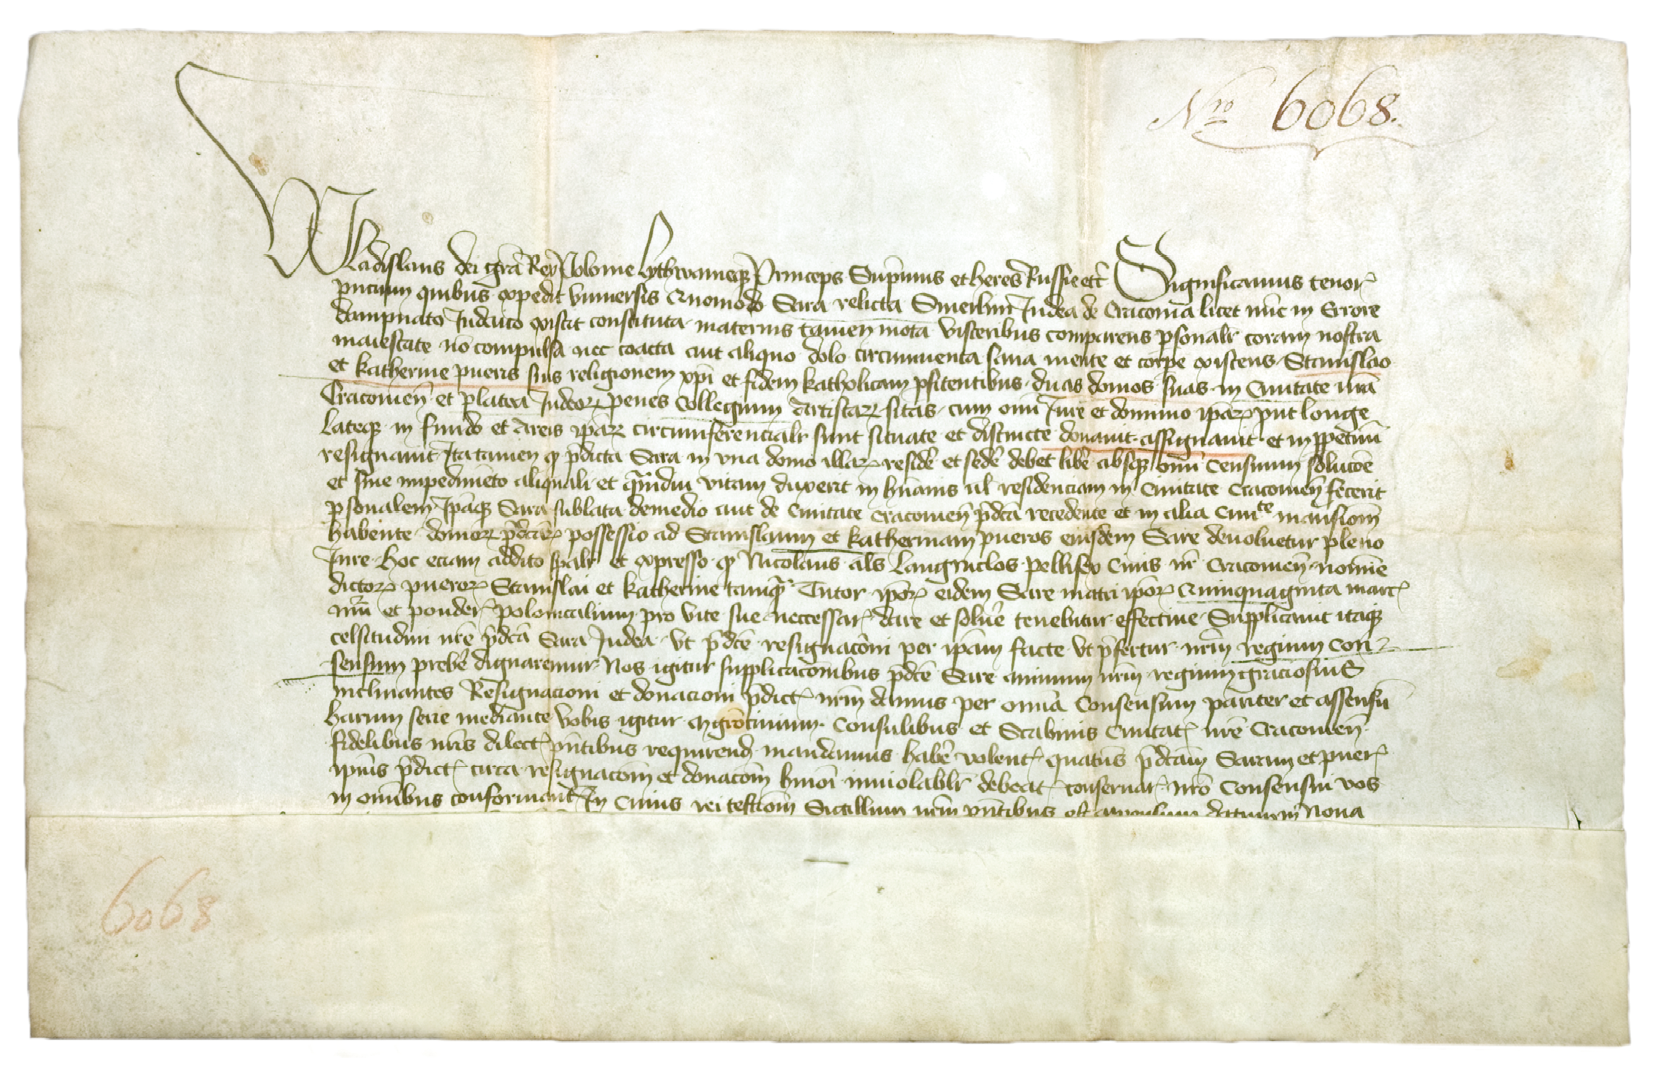 Nro 6068.
Wladislaus dei gra Rex Polonie Lythwanieq Princeps Suprmus et heres Russie etc Significamus tenore
pntium quibus expedit vniuersis Quomodo Sara relicta Judea de Cracouia licet nunc in Errore
dampnato Judaico existit constituta maternis tamen mota visceribus comparens psonalr coram nostra
maiestate no compulsa nec coacta aut aliquo dolo circumuenta sana mente et corpe existens Stanislao
et Katherine pueris suis religionem xpi et fidem katholicam pfitentibus duas domos suas in Ciuitate nra
Cracouien et platea Judeor penes Collegium Artistar sitas cum omi Jure et dominio ipar put longe
lateq in fundo et Areis ipar circumferencialr sunt situate et distincte donauit assignauit et in ppetuu
resignauit Ita tamen q pdicta Sara in vna domo illar reside et sede debet libe absq omi Censuum solucoe
et sine impedimeto aliquali et qmdiu vitam duxerit in huanis ul residenciam in Ciuitate Cracouien fecerit
psonalem Ipaq Sara sublata de medio aut de Ciuitate Cracouien pdca recedente et in alia Ciuite mansiom
habente domor pdcar possessio ad Stanislaum et Katherinam pueros eiusdem Sare deuoluetur pleno
Jure Hoc eciam addito spalr et expresso q Nicolaus als Langniclos pellifex Ciuis nr Cracouien nomie
dictor pueror Stanislai et Katherine tamq Tutor ipor eidem Sare matri ipor Quinquaginta marc
nui et ponder polonicalium pro vite sue neccessar dare et solue tenebitur effectiue Supplicauit itaq
celsitudini nre pdca Sara Judea vt pdce resignacoi per ipam facte vt pfertur nrm regium con
sensum prebe dignaremur Nos igitur supplicacoibus pdce Sare animum nrm regium graciosius
inclinantes Resignacioni et donacioni pdict nrm damus per omia Consensum pariter et assensu
harum serie mediante vobis igitur Consulibus et Scabinis Ciuitat nre Cracouien
fidelibus nris dilect pntibus requirend mandamus habe volent quatus pdcam Saram et puer
ipius pdict circa resignacom et donacom hmoi inuiolablr debeat conseruar nro Consensui vos
in omibus conformant In Cuius rei testiom Sigillum nrm pntibus est Noua
6068